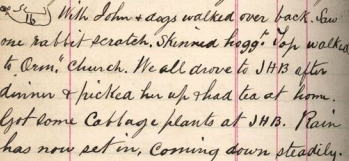 16 With John & dogs walked over back. Saw
one rabbit scratch. Skinned hogg. Top walked
to Orm. Church. We all drove to JHB after
dinner & picked her up & had tea at home.
Got some Cabbage plants at JHB. Rain
has now set in, coming down steadily.